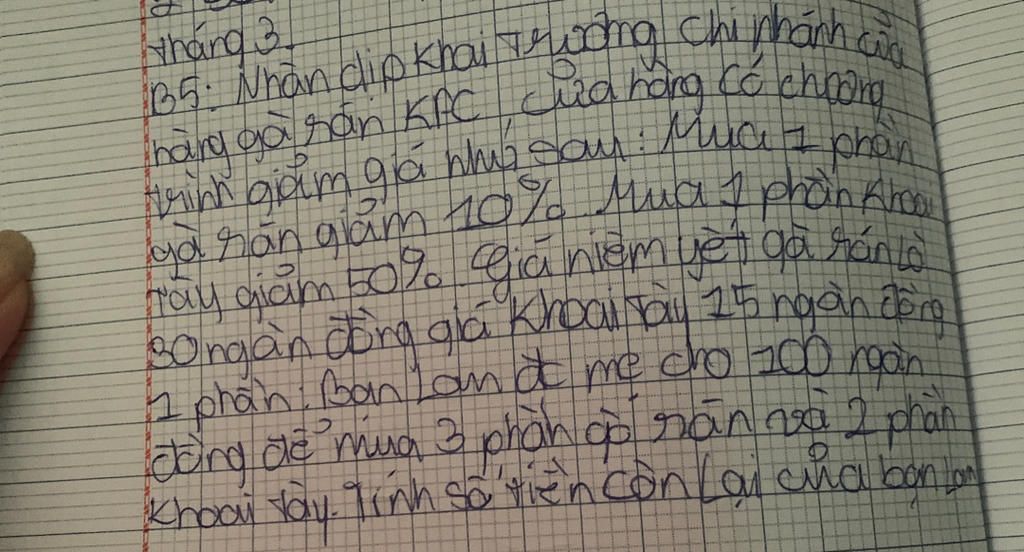 tháng 3.
B5: Nhân dịp khai trương chi nhánh cửa
hàng gà rán KFC, cửa hàng có chương
trình giảm giá như sau: Mua 1 phần
gà rán giảm 10%. Mua 1 phần khoai
tây giảm 50%. Giá niêm yết gà rán là
30 ngàn đồng giá khoai tây 15 ngàn đồng
1 phần. Bạn Lan đc mẹ cho 100 ngàn
đồng để mua 3 phần gà rán và 2 phần
khoai tây. Tính số tiền còn lại của bạn Lan